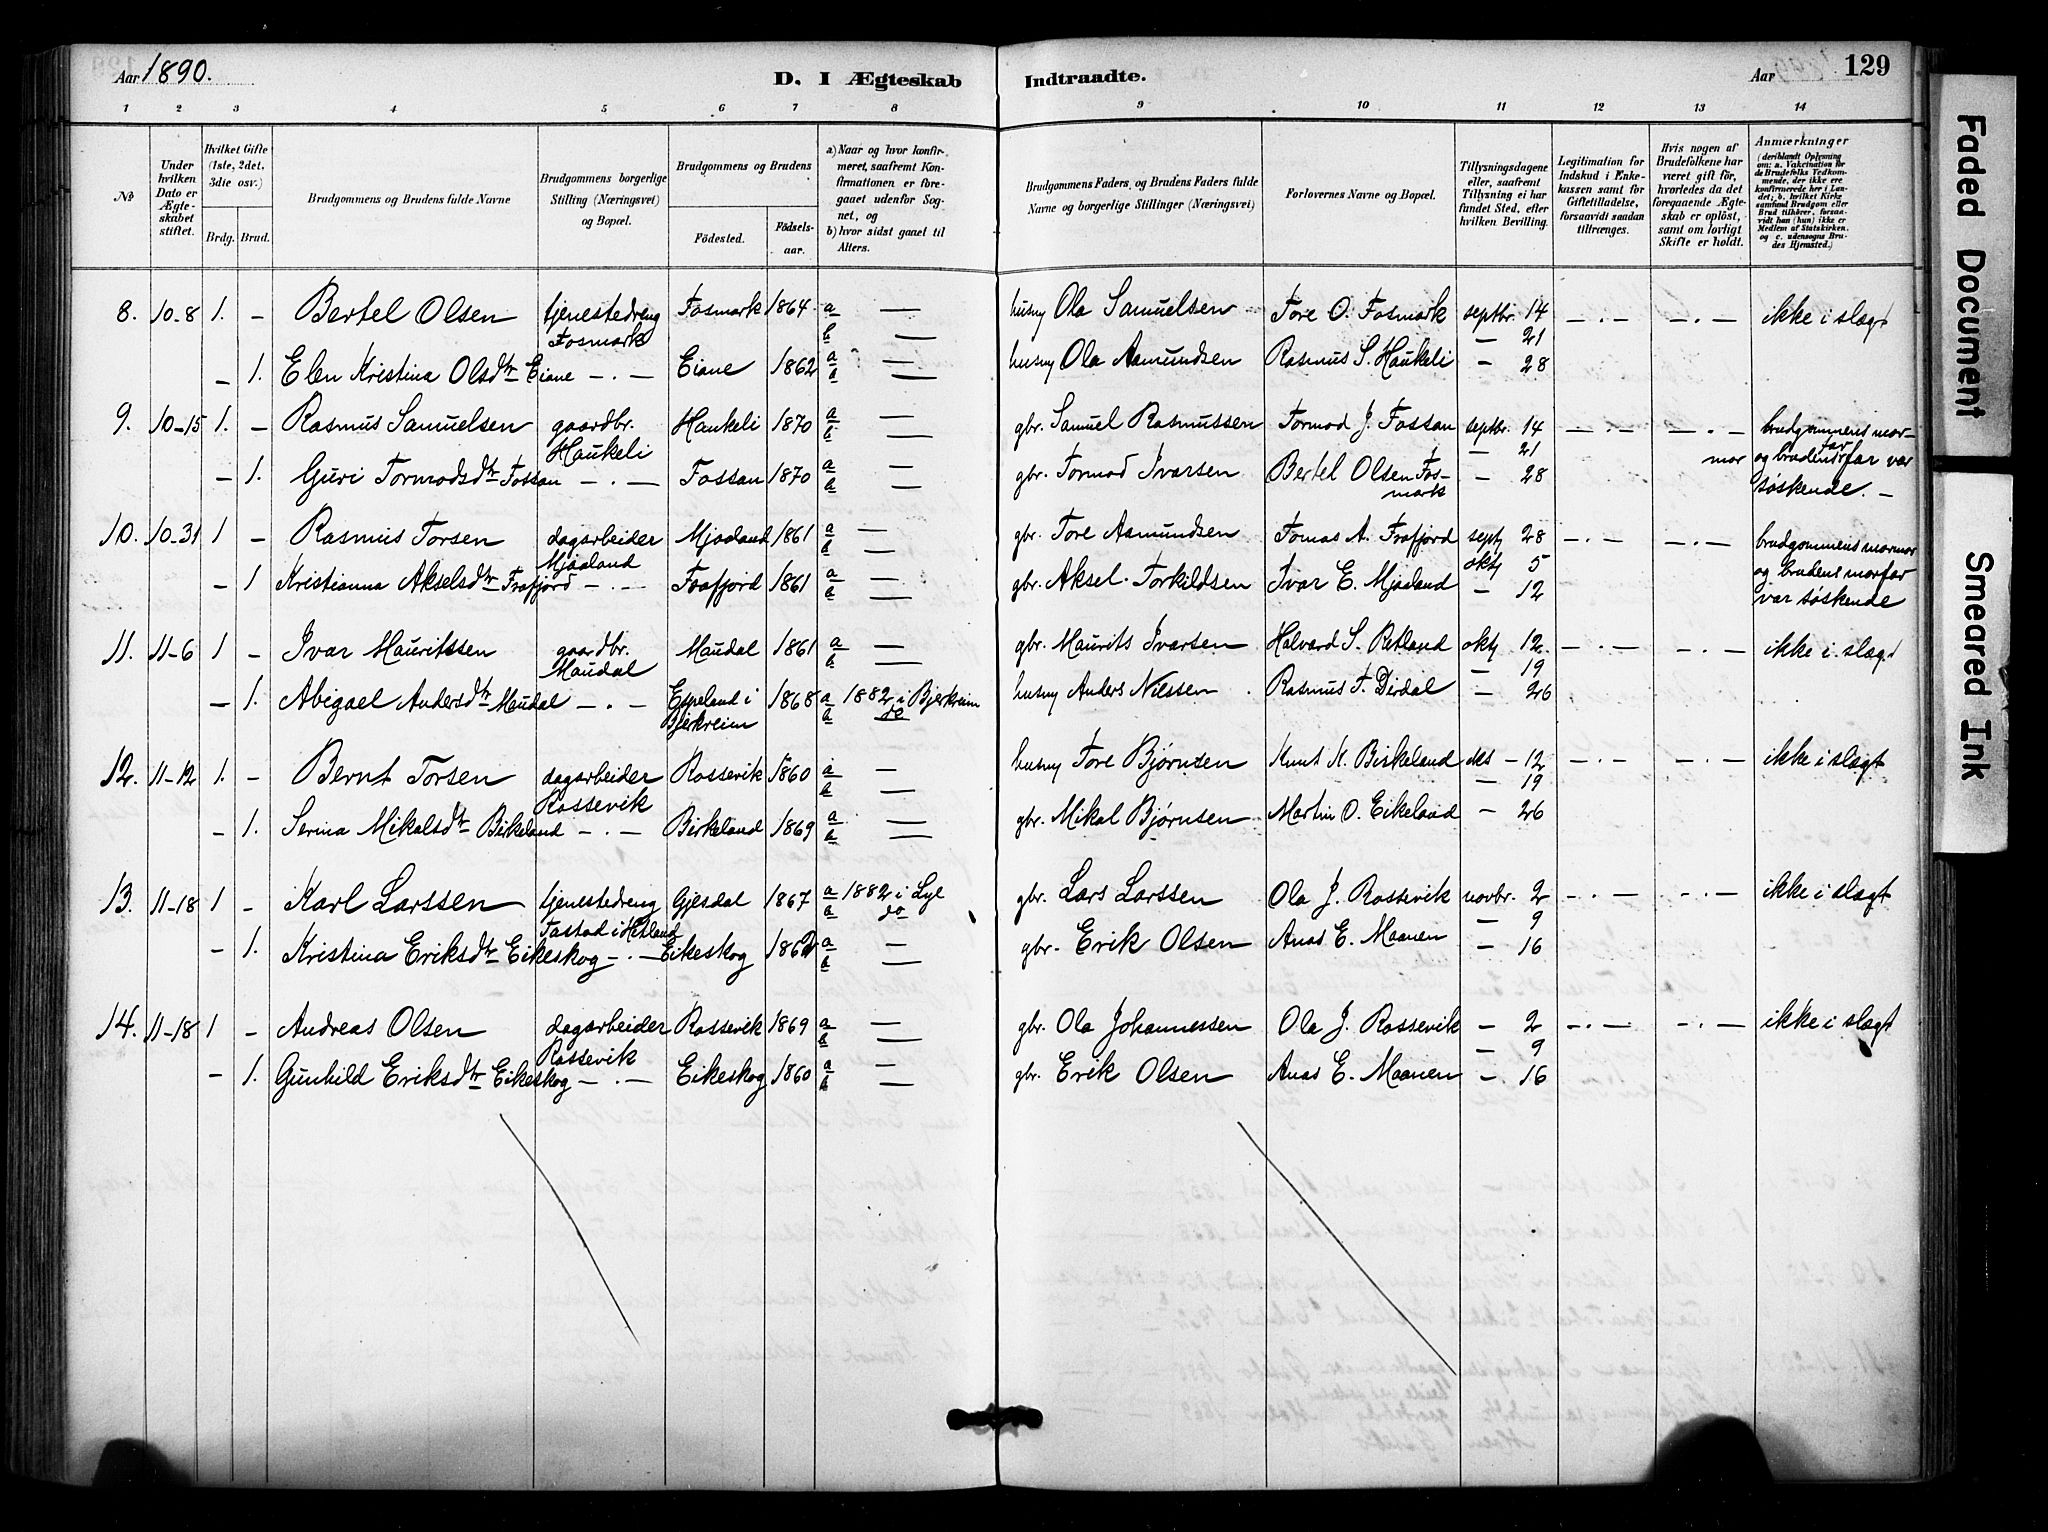 Aar 1890.
D. I Ægteskab Indtraadte.
Aar 129
1 2 3 4 5 6 7 8 9 10 11 12 13 14
№
Under hvilken Dato er Ægteskabet stiftet.
Hvilket Gifte (1ste, 2det, 3die osv.)
Brdg. Brud.
Brudgommens og Brudens fulde Navne
Brudgommens borgerlige Stilling (Næringsvei) og Bopæl.
Brudgommens og Brudens
Fødested.
Fødselsaar.
a) Naar og hvor konfirmeret, saafremt Konfirmationen er foregaaet udenfor Sognet, og
b) hvor sidst gaaet til Alters.
Brudgommens Faders, og Brudens Faders fulde Navne og borgerlige Stillinger (Næringsvei)
Forlovernes Navne og Bopæl.
Tillysningsdagene eller, saafremt Tillysning ei har fundet Sted, efter hvilken Bevilling.
Legitimation for Indskud i Enkekassen samt for Giftetilladelse, forsaavidt saadan tiltrænges.
Hvis nogen af Brudefolkene har været gift før, hvorledes da det foregaaende Ægteskab er opløst, samt om lovligt Skifte er holdt.
Anmærkninger
(deriblandt Oplysning om: a. Vakcination for de Brudefolks Vedkommende, der ikke ere konfirmerede her i Landet; b. hvilket Kirkesamfund Brudgom eller Brud tilhører, forsaavidt han (hun) ikke er Medlem af Statskirken, og c. udensogns Brudes Hjemsted.)
8. 10-8 1. – Bertel Olsen tjenestedreng Fosmark 1864 a — husmd Ola Samuelsen Tore O. Fosmark septbr. 14 –·– –·– ikke i slægt
Fosmark b — – 21
– 1. Elen Kristina Olsdtr Eiane –·– Eiane 1862 a b — husmd Ola Aamundsen Rasmus S. Haukeli – 28
9. 10-15 1. – Rasmus Samuelsen gaardbr. Haukeli 1870 a b — gbr. Samuel Rasmussen Tormod J. Fossan septbr. 14 –·– –·– brudgommens mor-
Haukeli – 21 mor og brudens farfar var
– 1. Guri Tormodsdtr Fossan –·– Fossan 1870 a b — gbr. Tormod Ivarsen Bertel Olsen Fos- – 28 søskende. –
mark
10. 10-31 1 – Rasmus Torsen dagarbeider Mjaaland 1861 a b — gbr. Tore Aamundsen Tomas A. Frafjord sept 28 –·– –·– brudgommens mormor
Mjaaland okt 5 og brudens morfar
– 1 Kristianna Akselsdtr Frafjord –·– Frafjord 1861 a b — gbr. Aksel Torkildsen Ivar E. Mjaaland – 12 var søskende
11. 11-6 1 – Ivar Mauritssen gaardbr. Maudal 1861 a b — gbr. Maurits Ivarsen Halvard S. Retland okt 12. –·– –·– ikke i slægt
Maudal – 19
– 1. Abigael Andersdtr Maudal –·– Espeland i 1868 a 1882 i Bjerkreim husmd Anders Nilssen Rasmus T. Dirdal – 26
Bjerkreim b do
12. 11-12 1. – Bernt Torsen dagarbeider Rossevik 1860 a b — husmd Tore Bjørnsen Knut K. Birkeland okt – 12 –·– –·– ikke i slægt
Rossevik – 19
– 1. Serina Mikalsdtr Birkeland –·– Birkeland 1869 a b — gbr. Mikal Bjørnsen Martin O. Eikeland – 26
13. 11-18 1 – Karl Larssen tjenestedreng Gjesdal 1867 a 1882 i Lye gbr. Lars Larssen Ola J. Rossevik novbr. 2 –·– –·– ikke i slægt
Fastad i Hetland b do – 9
– 1. Kristina Eriksdtr Eikeskog –·– Eikeskog 1862 a b — gbr. Erik Olsen Anas E. Maanen – 16
14. 11-18 1 – Andreas Olsen dagarbeider Rossevik 1869 a b — gbr. Ola Johannessen Ola J. Rossevik – 2 –·– –·– ikke i slægt
Rossevik – 9
– 1. Gunhild Eriksdtr Eikeskog –·– Eikeskog 1860 a b — gbr. Erik Olsen Anas E. Maanen – 16
Faded Document
Smeared Ink